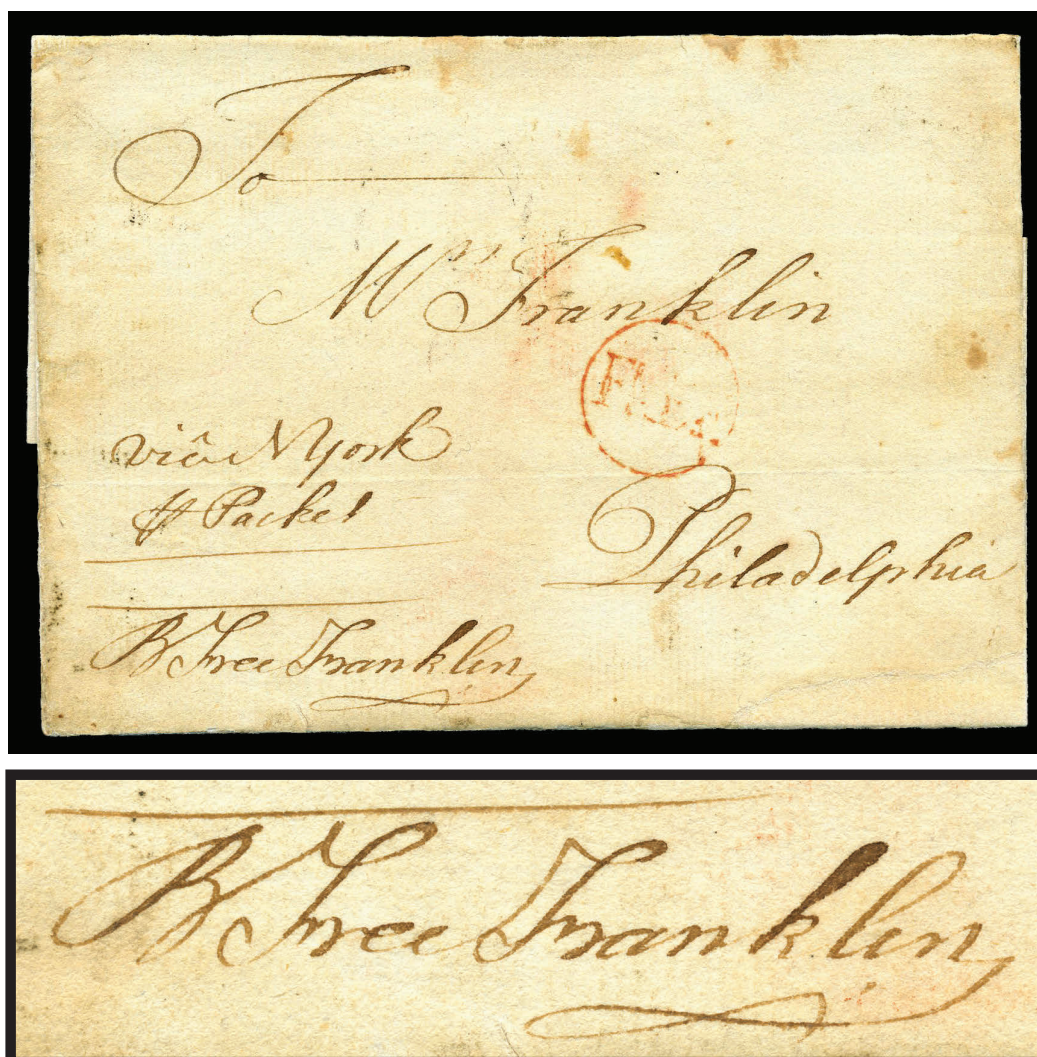 To
Mrs Franklin
FREE.
viâ N York
⅌ Packet
Philadelphia
B Free Franklin
B Free Franklin